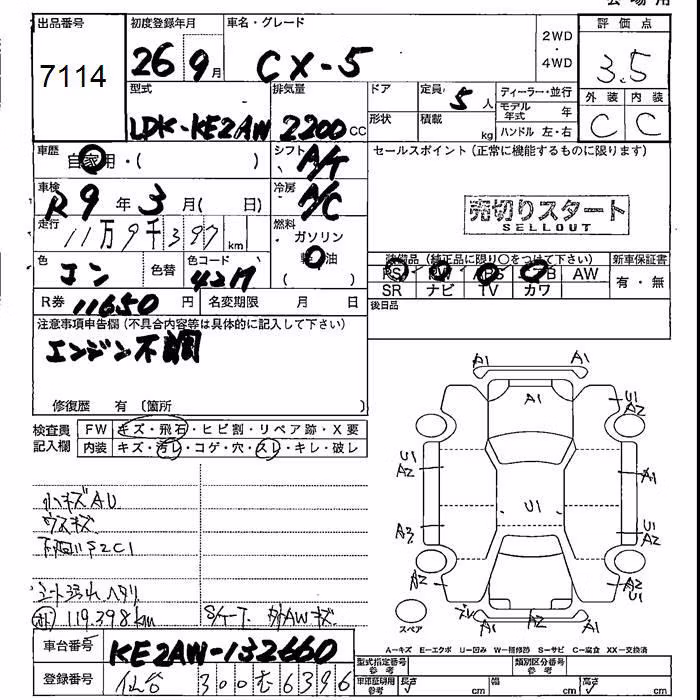 会場用
出品番号
7114
初度登録年月
26 9月
車名・グレード
CX-5
2WD
・
4WD
評価点
3.5
外装 内装
C C
型式
LDK-KE2AW
排気量
2200cc
ドア
定員 5人
形状
積載 kg
ディーラー・並行
モデル年式 年
ハンドル 左・右
車歴
自家用・( )
シフト
A/T
車検
R9年3月( 日)
冷房
A/C
走行
11万9千397km
燃料
ガソリン
軽油
( )
色
コン
色替
色コード
42M
R券 11650円
名変期限 月 日
セールスポイント(正常に機能するものに限ります)
売切りスタート
SELLOUT
装備品(純正品に限り○をつけて下さい)
新車保証書
PS AW
有・無
SR ナビ TV カワ
後日品
注意事項申告欄(不具合内容等は具体的に記入して下さい)
エンジン不調
修復歴 有〔箇所 〕
検査員記入欄
FW キズ・飛石・ヒビ割・リペア跡・X要
内装 キズ・汚レ・コゲ・穴・スレ・キレ・破レ
小キズAU
ウスキズ
シート汚れ ヘタリ
119,398km
外AWキズ
A1 A1
A1
U1
A2
U1
A2
A1
U1
A2
U1
A2
A2
A2
U1
A2
スペア
A2 A1
A-キズ E-エクボ U-凹み W-補修跡 S-サビ C-腐食 XX-交換済
車台番号
KE2AW-132660
登録番号
仙台 300 も 6396
型式指定番号
参考
類別区分番号
参考
車庫証明用
参考
長さ cm
幅 cm
高さ cm